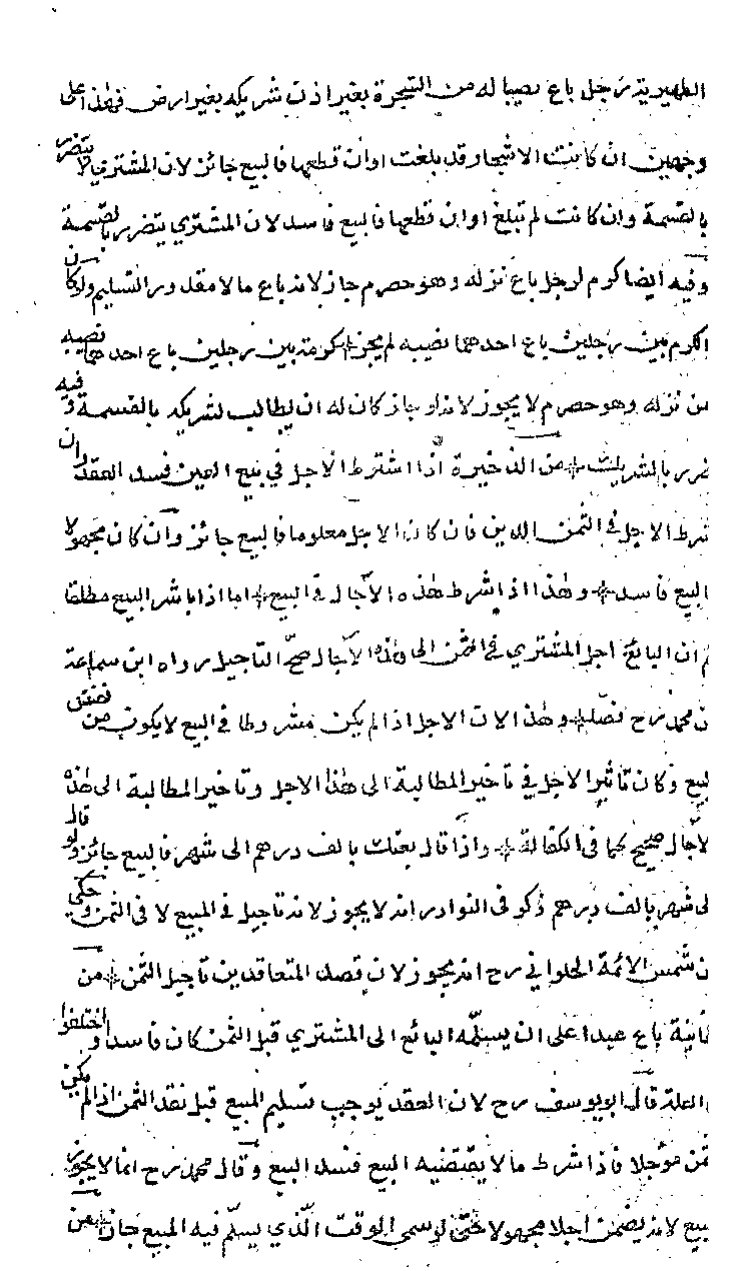 الظهيرية رجل باع نصيبا له من الشجرة بغير اذن شريكه بغير ارض فهذا على
وجهين ان كانت الاشجار قد بلغت اوان قطعها فالبيع جائز لان المشتري لا يتضرر
بالقسمة وان كانت لم تبلغ اوان قطعها فالبيع فاسد لان المشتري يتضرر بالقسمة
وفيه ايضا كرم لرجل باع نزله وهو حصرم جاز لانه باع مالا مقدور التسليم ولو كان
الكرم بين رجلين باع احدهما نصيبه لم يجز * كرمة بين رجلين باع احدهما نصيبه
من نزله وهو حصرم لا يجوز لانه لو جاز كان له ان يطالب لشريكه بالقسمة وفيه
ضرر بالشريك * من الذخيرة اذا اشترط الاجل في بيع العين فسد العقد وان
شرط الاجل في الثمن الدين فان كان الاجل معلوما فالبيع جائز وان كان مجهولا
البيع فاسد * وهذا اذا شرط هذه الآجال في البيع * اما اذا باشر البيع مطلقا
ثم ان البائع اجل المشتري في الثمن الى هذه الآجال صح التاجيل رواه ابن سماعة
ن محمد رح فصلا * وهذا لان الاجل اذا لم يكن مشروطا في البيع لا يكون من
لبيع وكان تاثير الاجل في تاخير المطالبة الى هذا الاجل وتاخير المطالبة الى هذه
لآجال صحيح كما في الكفالة * واذا قال بعتك بالف درهم الى شهر فالبيع جائز ولو قال
لى شهر بالف درهم ذكر في النوادر انه لا يجوز لانه تاجيل في المبيع لا في الثمن وحكي
ن شمس الائمة الحلواني رح انه يجوز لان قصد المتعاقدين تاجيل الثمن * من
باع عبدا على ان يسلمه البائع الى المشتري قبل الثمن كان فاسدا واختلفوا
العلة قال ابو يوسف رح لان العقد يوجب تسليم المبيع قبل نقد الثمن اذا لم يكن
ثمن مؤجلا فاذا شرط ما لا يقتضيه البيع فسد البيع وقال محمد رح انما لا يجوز
بيع لانه يضمن اجلا مجهولا حتى لو سمى الوقت الذي يسلم فيه المبيع جاز * من